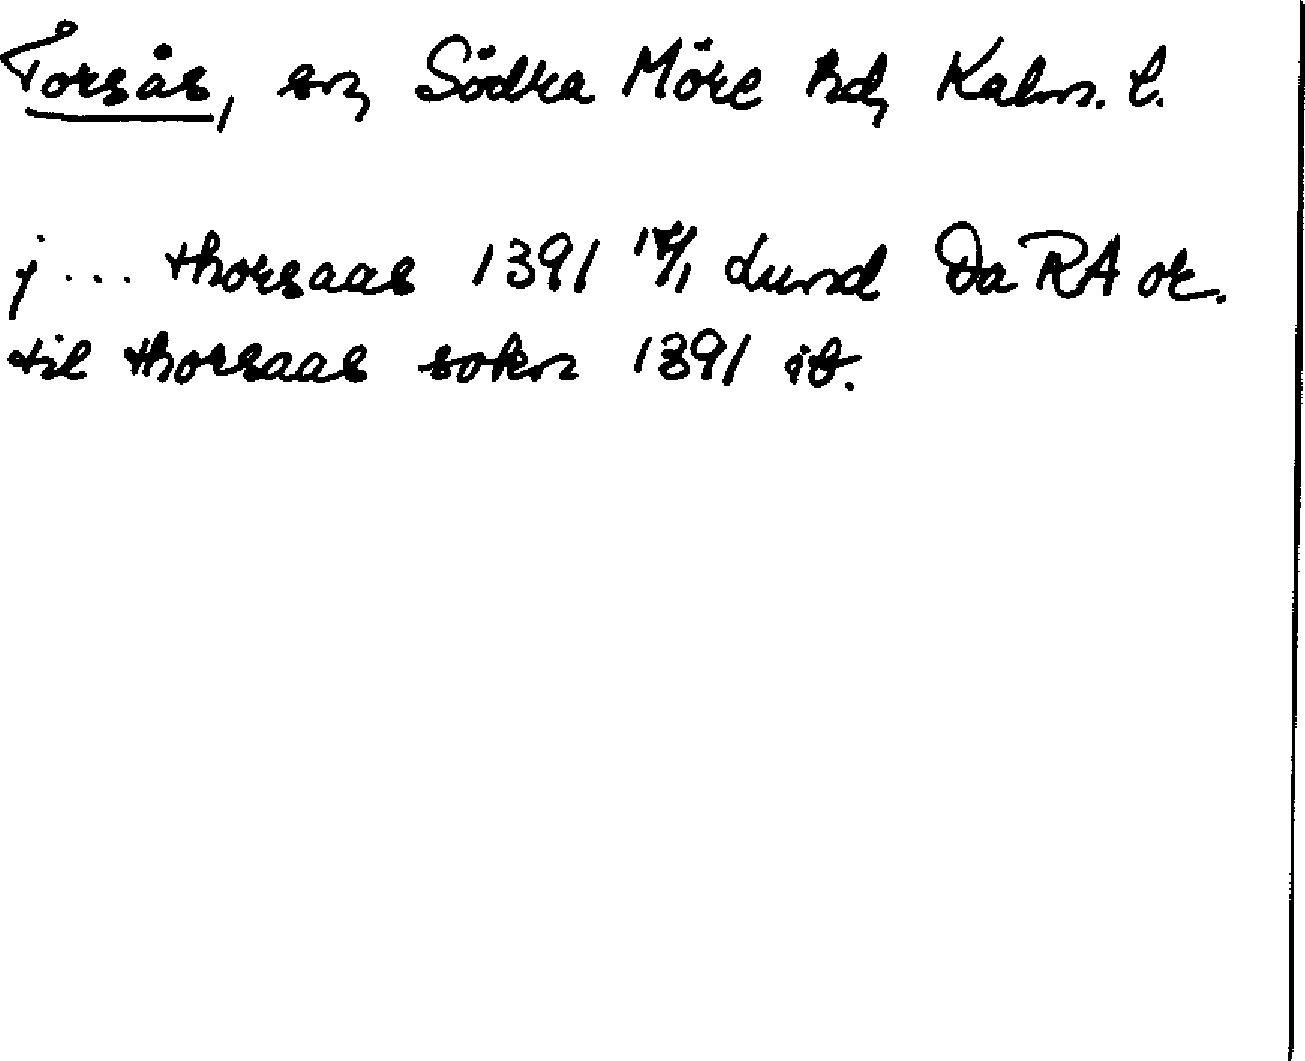 Torsås, sn, Södra Möre hd, Kalm. l.
j... thorsaas 1391 17/1 Lund Da RA or.
til thorsaas sokn 1391 ib.